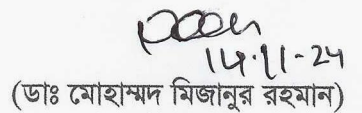 14.11-24
(ডাঃ মোহাম্মদ মিজানুর রহমান)